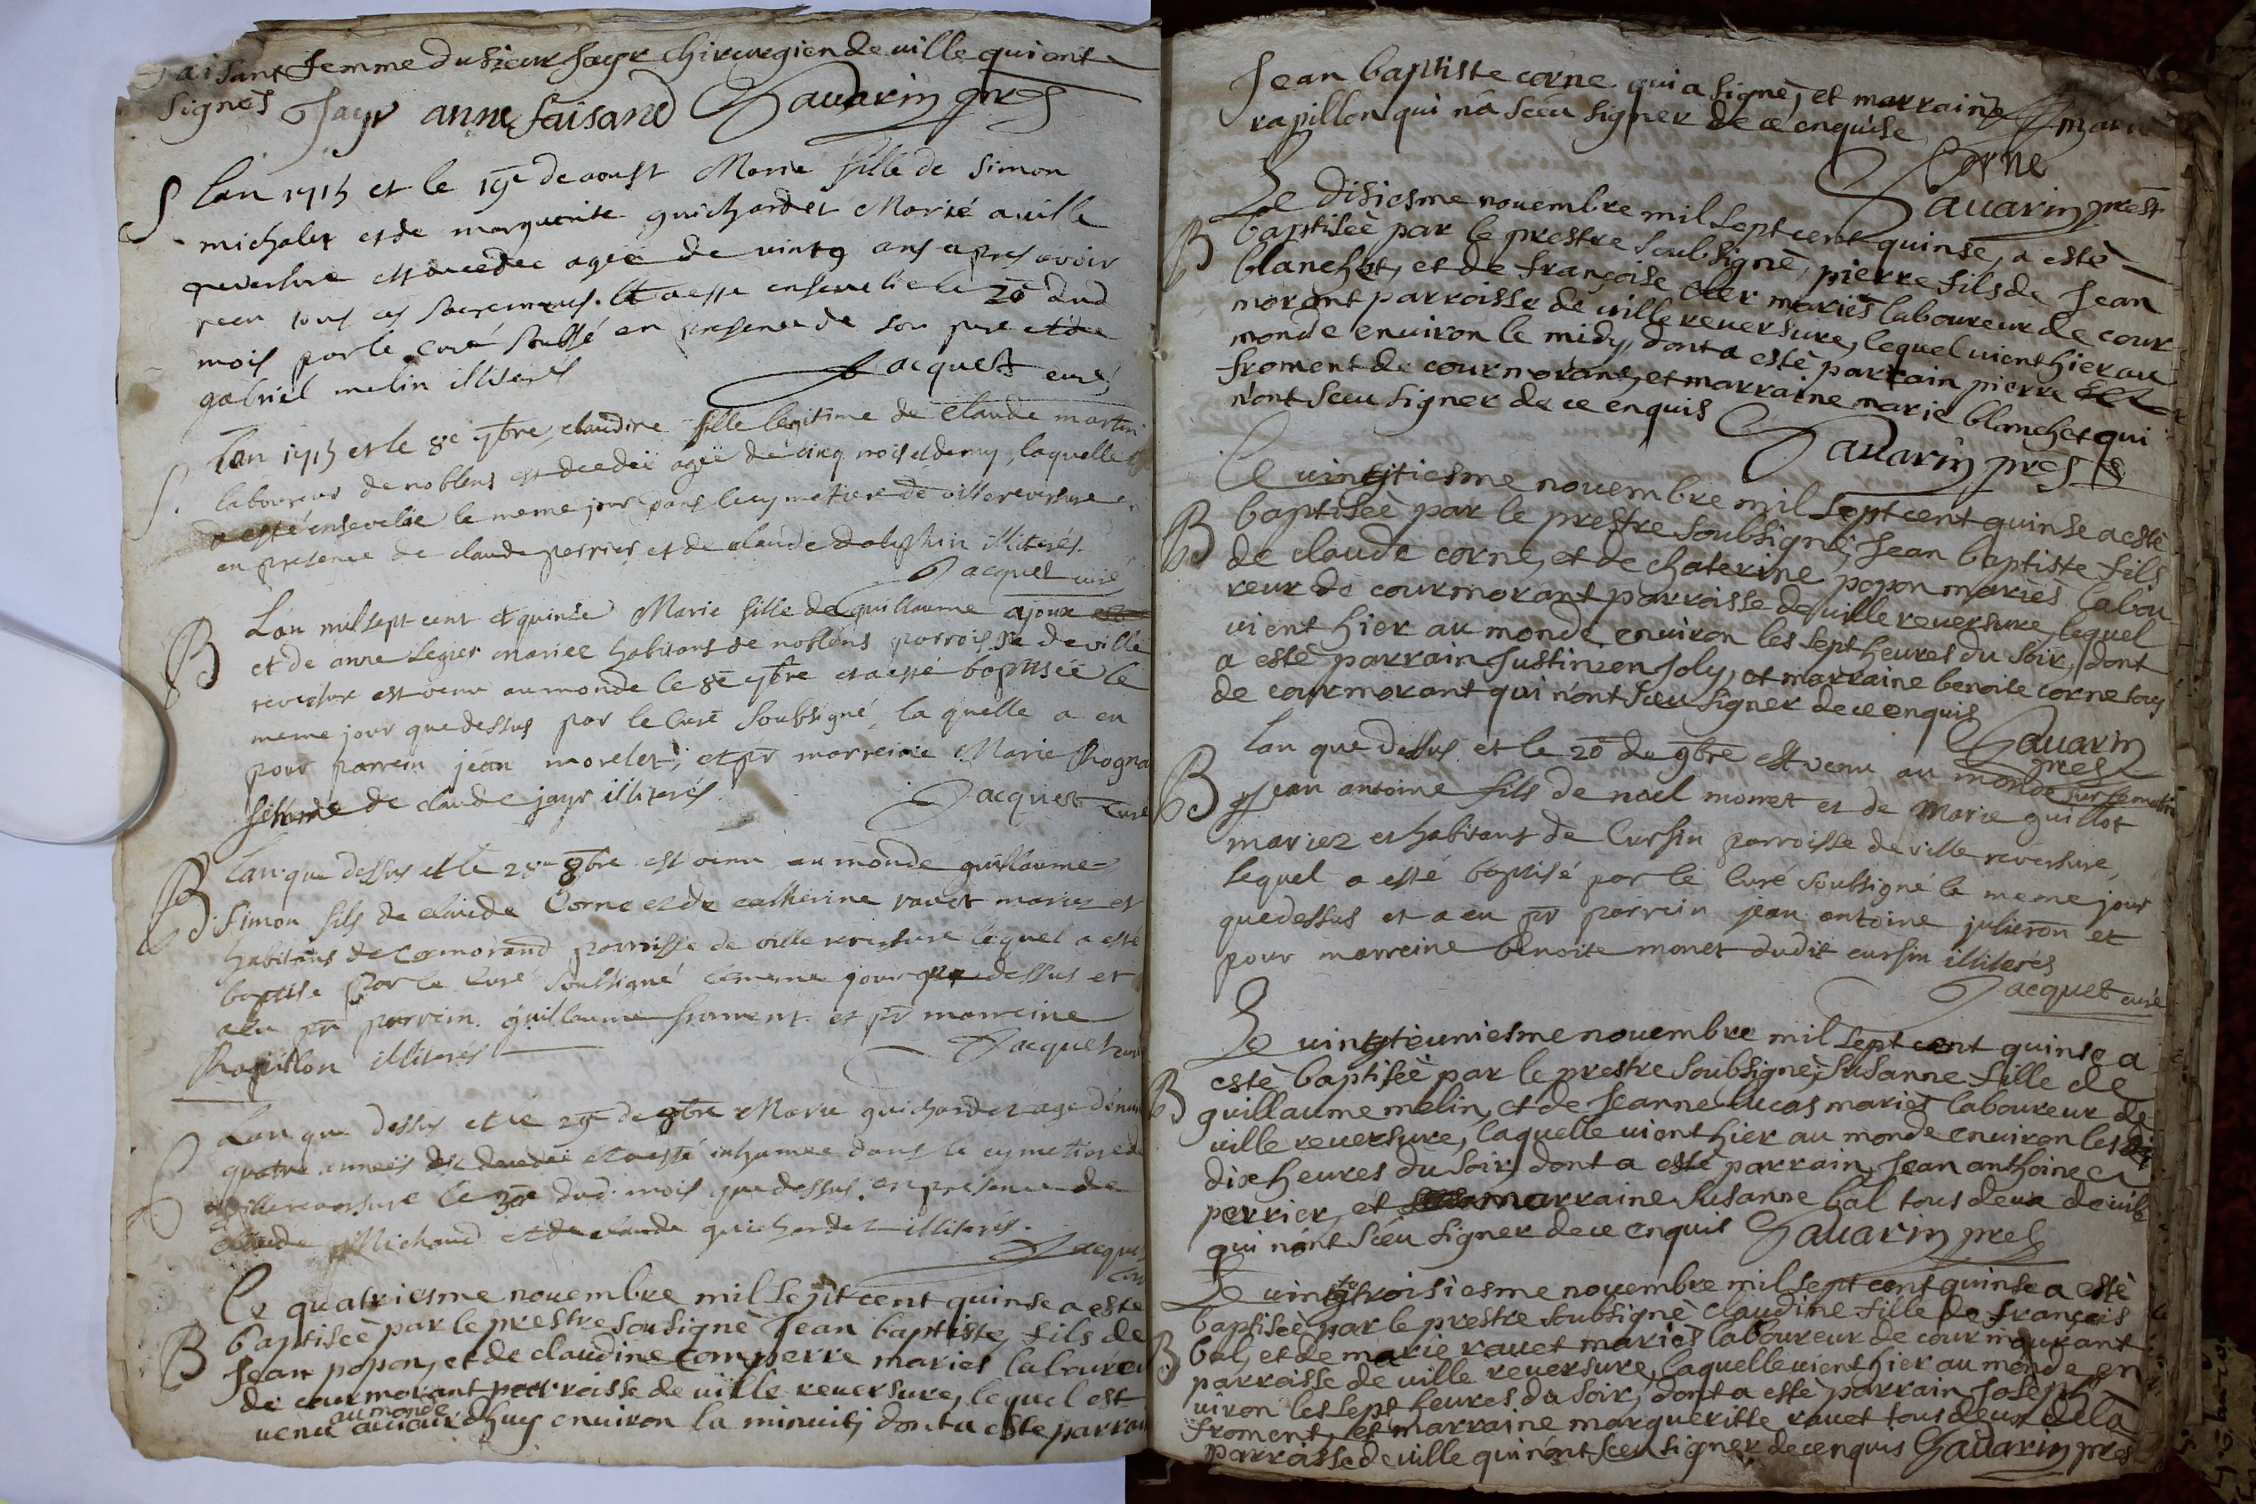 faisant femme du sieur Jayr chirurgien de ville qui ont
signés Jayr anne faisand Savarin pres
S lan 1715 et le 19e de aoust Marie fille de Simon
michalet et de marguerite guichardet Marié a ville
reversure est decedee agée de vintg ans apres avoir
receu tous ces sacremens. Et a esté ensevelie le 20e dud
mois par le curé soubsé en presence de son pere et de
gabriel melin illiterés Jacquet curé
S. lan 1715 et le 8e 7bre claudine fille legitime de Claude martin
laboureur de noblens est decedeé agée de cinq mois et demy, laquelle
a esté ensevelie le meme jour dans le cymetiere de villereversure
en presence de claude perrier et de claude dalophin illiterés.
Jacquet curé
B Lan mil sept cent et quinze Marie fille de guillaume ajoux
et de anne Legier mariee habitans de noblens parroisse de ville
reversure est venu au monde le 8e 7bre et a esté baptisée le
meme jour que dessus par le Curé Soubsigné, la quelle a eu
pour parrein jean morelet, et pr marreine Marie
femme de claude jayr illiterés Jacquet Curé
B Lan que dessus et le 25 8bre est venu au monde guillaume
Simon fils de claude Corne et de catherine ravet maries et
habitans de Cormorand parroisse de ville reversure lequel a esté
baptise par le Curé Soubsigné le meme jour que dessus et
a eu pr parrein guillaume froment et pr marreine
Rapillon illiterés Jacquet curé
S Lan que dessus et le 29e de 8bre Marie guichardet age
quatre annees est decedeé et a esté inhumee dans le cymetiere de
villereversure le 30e dud. mois que dessus. en presence de
claude Michaud et de claude guichardet illiterés.
Jacquet
Curé
Le quatriesme novembre mil sept cent quinse a este
B baptiseè par le prestre sousigné Jean baptiste, fils de
Jean popon, et de claudine comperre mariés laboureur
de courmorant parroisse de ville reversure, lequel est
au monde
venu aujourdhuy environ la minuit, dont a este parrain
Jean baptiste corne qui a signé, et marraine marie
rapillon qui na sceu signer de ce enquise
Corne
Savarin prest
Le disiesme novembre mil sept cent quinse, a estè
B baptiseè par le prestre soubsigné, pierre fils de Jean
blanchet, et de françoise cler mariés laboureur de cour
morant parroisse de ville reversure, lequel vient hier au
monde environ le midy, dont a estè parrain pierre
froment de courmorant, et marraine marie blanchet qui
n'ont sceu signer de ce enquis Savarin pres
Le vingtiesme novembre mil sept cent quinse a estè
B baptiseè par le prestre soubsigné, Jean baptiste fils
de claude corne, et de chaterine popon mariès labou
reur de courmorant parroisse de ville reversure, lequel
vient hier au monde environ les sept heures du soir, dont
a estè parrain Justinien Joly, et marraine benoite corne tous
de courmorant qui n'ont sceu signer de ce enquis
Savarin
pres
B lan que dessus et le 20e de 9bre est venu au monde sur le matin
Jean antoine fils de noel monet et de Marie guillot
mariez et habitans de Cursin parroisse de ville reversure,
lequel a esté baptisé par le Curé soubsigné le meme jour
que dessus et a eu pr parrein jean antoine julieron et
pour marreine benoite monet dudit cursin illiterés
Jacquet curé
Le vingteuniesme novembre mil sept cent quinse a
B estè baptiseè par le prestre soubsigné, Susanne fille de
guillaume melin, et de Jeanne lucas mariés laboureur de
ville reversure, laquelle vient hier au monde environ les
dix heures du soir, dont a estè parrain Jean anthoine
perrier, et marraine Susanne bal tous deux de ville
qui n'ont sceu signer de ce enquis Savarin pres
Le vingttroisiesme novembre mil sept cent quinse a estè
B baptiseè par le prestre soubsigné claudine fille de françois
bal, et de marie ravet mariés laboureur de courmourant
parroisse de ville reversure, laquelle vient hier au monde en
viron les sept heures du soir, dont a estè parrain Joseph
froment, et marraine margueritte ravet tous deux de la
parroisse de ville qui n'ont sceu signer de ce enquis Savarin pres